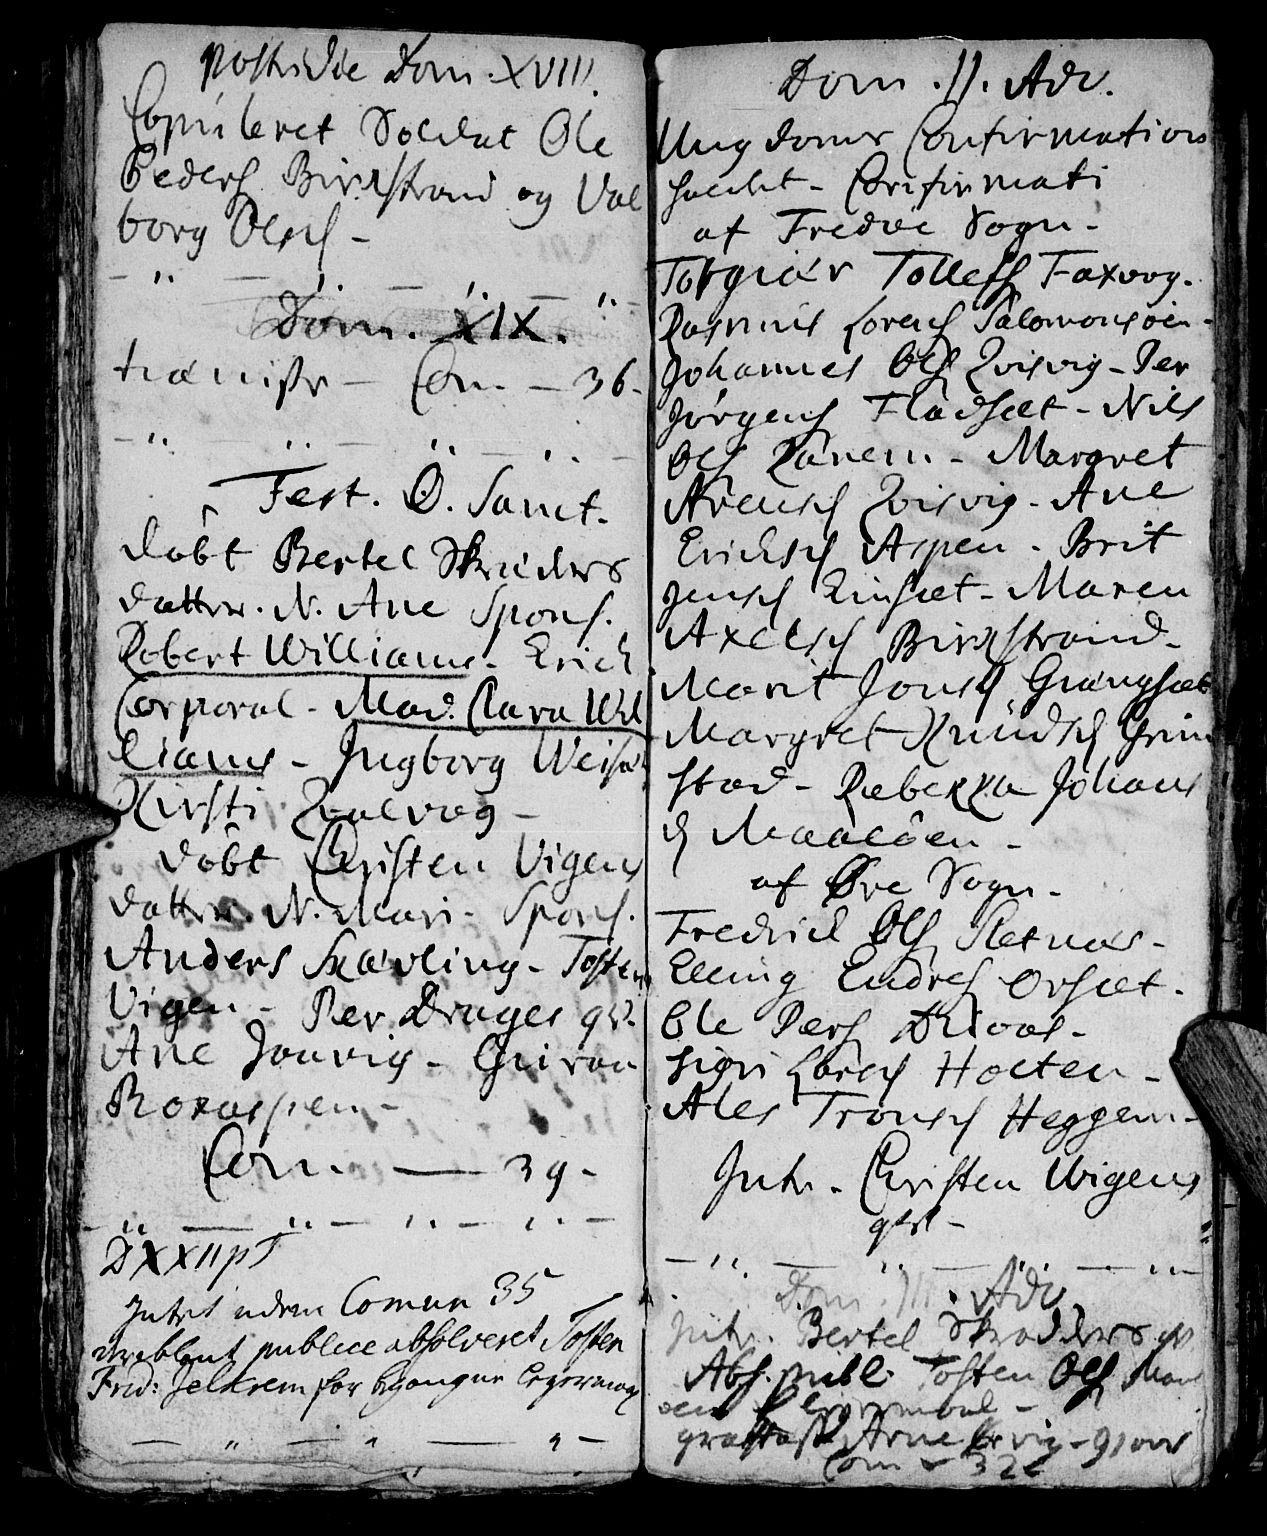 postridie Dom. XVIII.
Copuleret Soldat Ole
Peders. Birkstrand og Val
borg Olsd –
Dom. XIX.
Com. – 36 –
Fest. O. Sanct.
Døbt Bertel Skræders
datter. N. Ane Spons.
Robert Williams – Erich
Corporal – Mad. Clara Wil
liams – Ingborg
Kirsti Qvalvog –
døbt Christen Vigens
datter. N. Mari – Spons.
Anders Skarling – Tosten
Vigen – Per Drages qv.
Ane Jonvig – Guroe
Roxaspen –
Com. — 39 –
D XXII p T
Intet uden Comun 35
publice absolveret Tosten
Frid:
Dom. II. Adv.
Ungdoms Confirmation
holdt – Confirmati
af Fredøe Sogn –
Torgier Tollefs Faxvog.
Rasmus Lorens Salomonsøen –
Johannes Ols Qvisvig – Per
Jørgens Fladsæt – Nils
Ols Ranem – Margret
Arensd Qvisvig – Ane
Ericksd Aspen – Brit
Jensd Einsæt – Maren
Axelsd Birkstrand –
Marit Jonsd Grangsæt
Margret Knudsd Grim
stad – Rebekka Johans
d Maaløen –
af Øre Sogn –
Fredrick Ols Sletnæs –
Elling Endres Orsæt –
Ole Pers Drivas –
Sigri Larsd Holten –
Ales Tronsd Heggem –
Intr. Christen Vigens
qv. –
Dom. III. Adv.
Intr. Bertel Skrædders qv.
Abs. publ. Tosten Ols
Arne
Com – 32